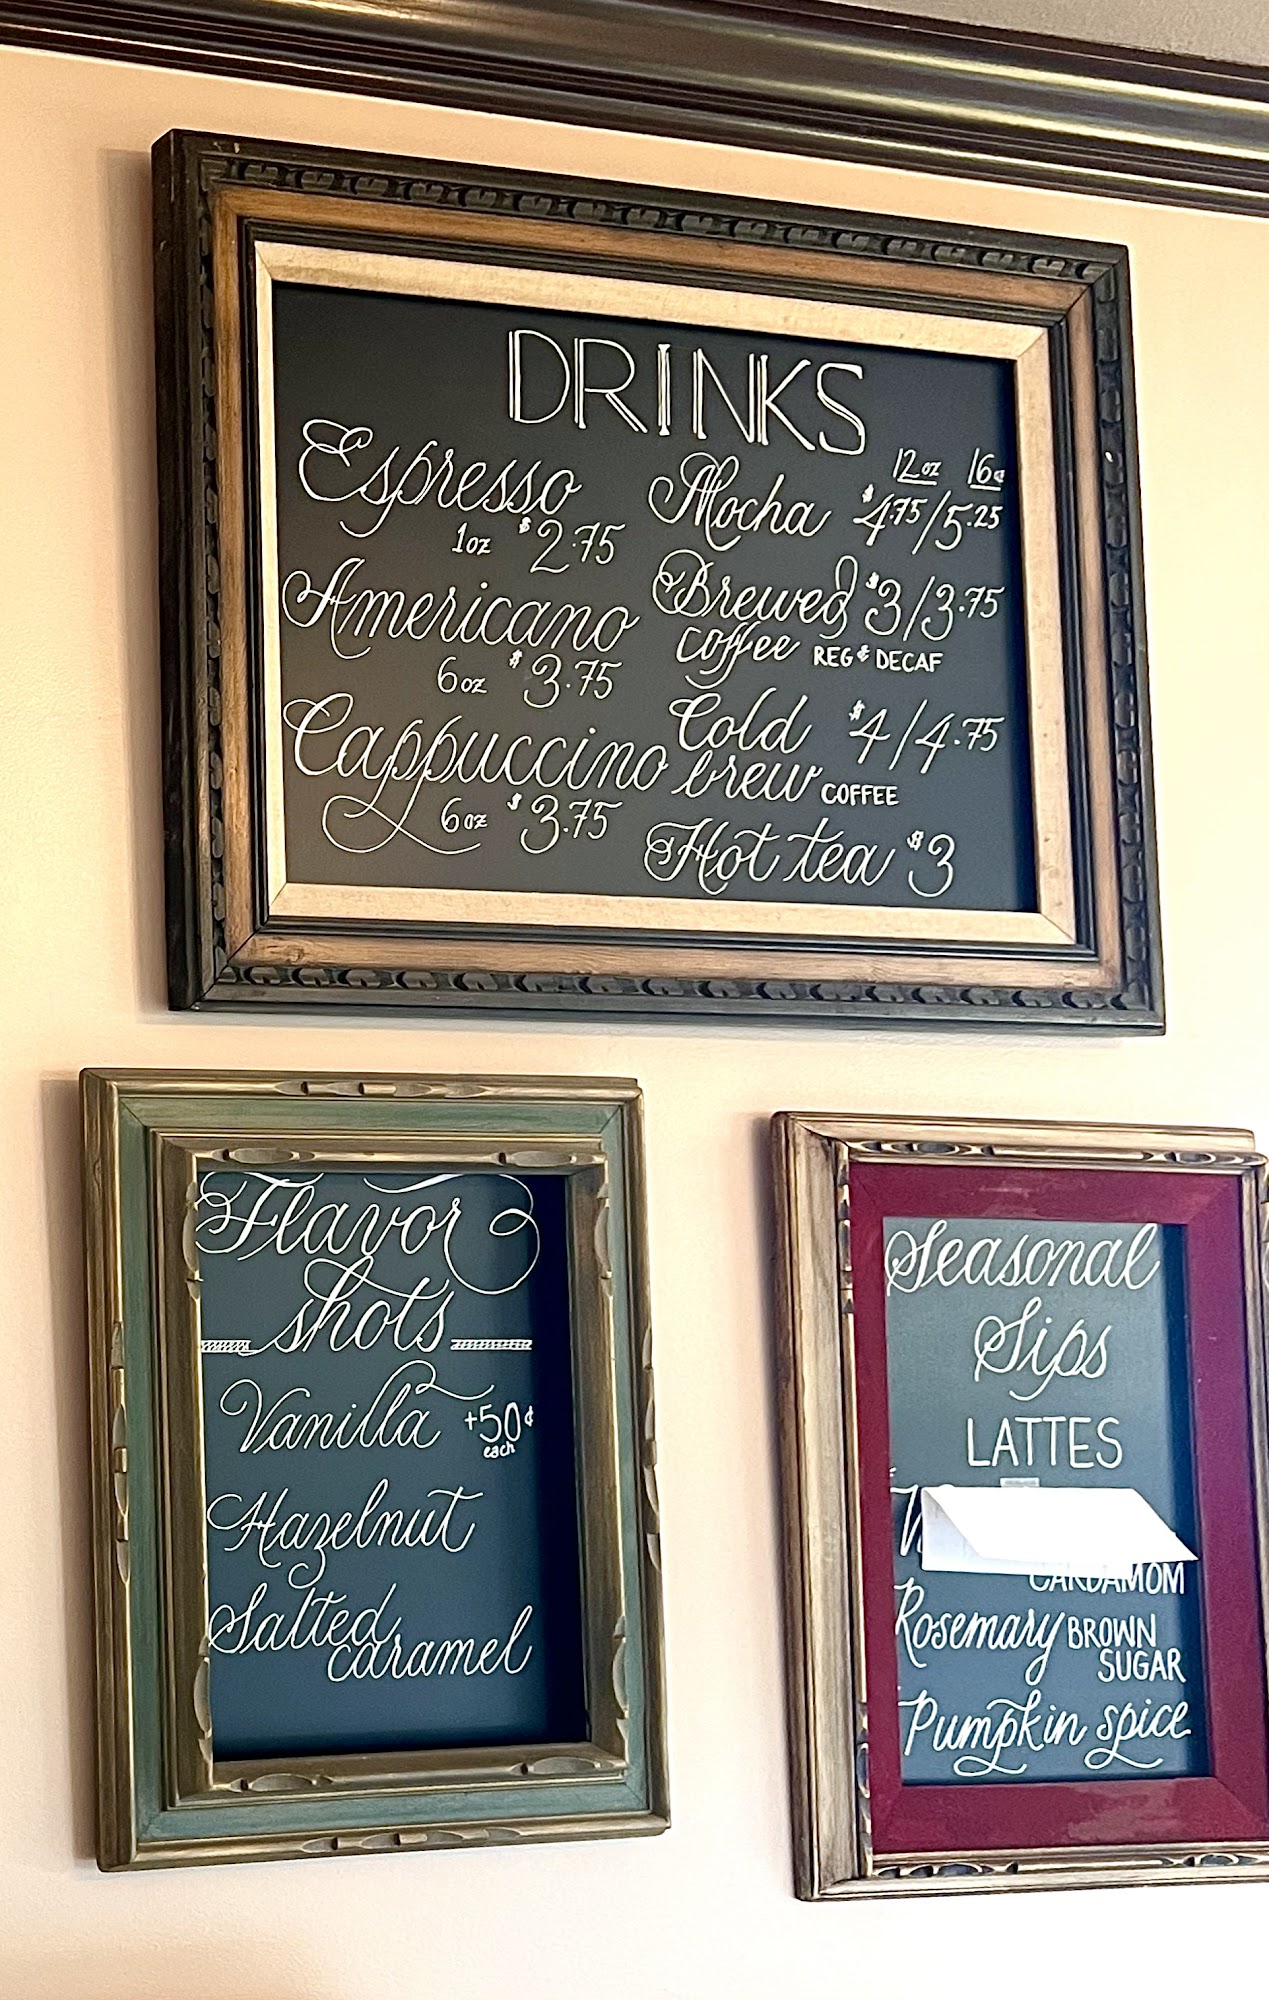 DRINKS
Espresso
1oz $2.75
Americano
6oz $3.75
Cappuccino
6oz $3.75
12oz 16oz
Mocha $4.75/5.25
Brewed $3/3.75
coffee REG & DECAF
Cold $4/4.75
brew COFFEE
Hot tea $3
Flavor
shots
Vanilla +50¢
each
Hazelnut
Salted
caramel
Seasonal
Sips
LATTES
CARDAMOM
Rosemary BROWN
SUGAR
Pumpkin spice